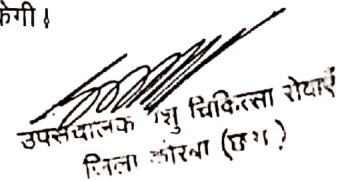 केगी।
उपसंचालक पशु चिकित्सा सेवाएँ
जिला कोरबा (छ.ग.)